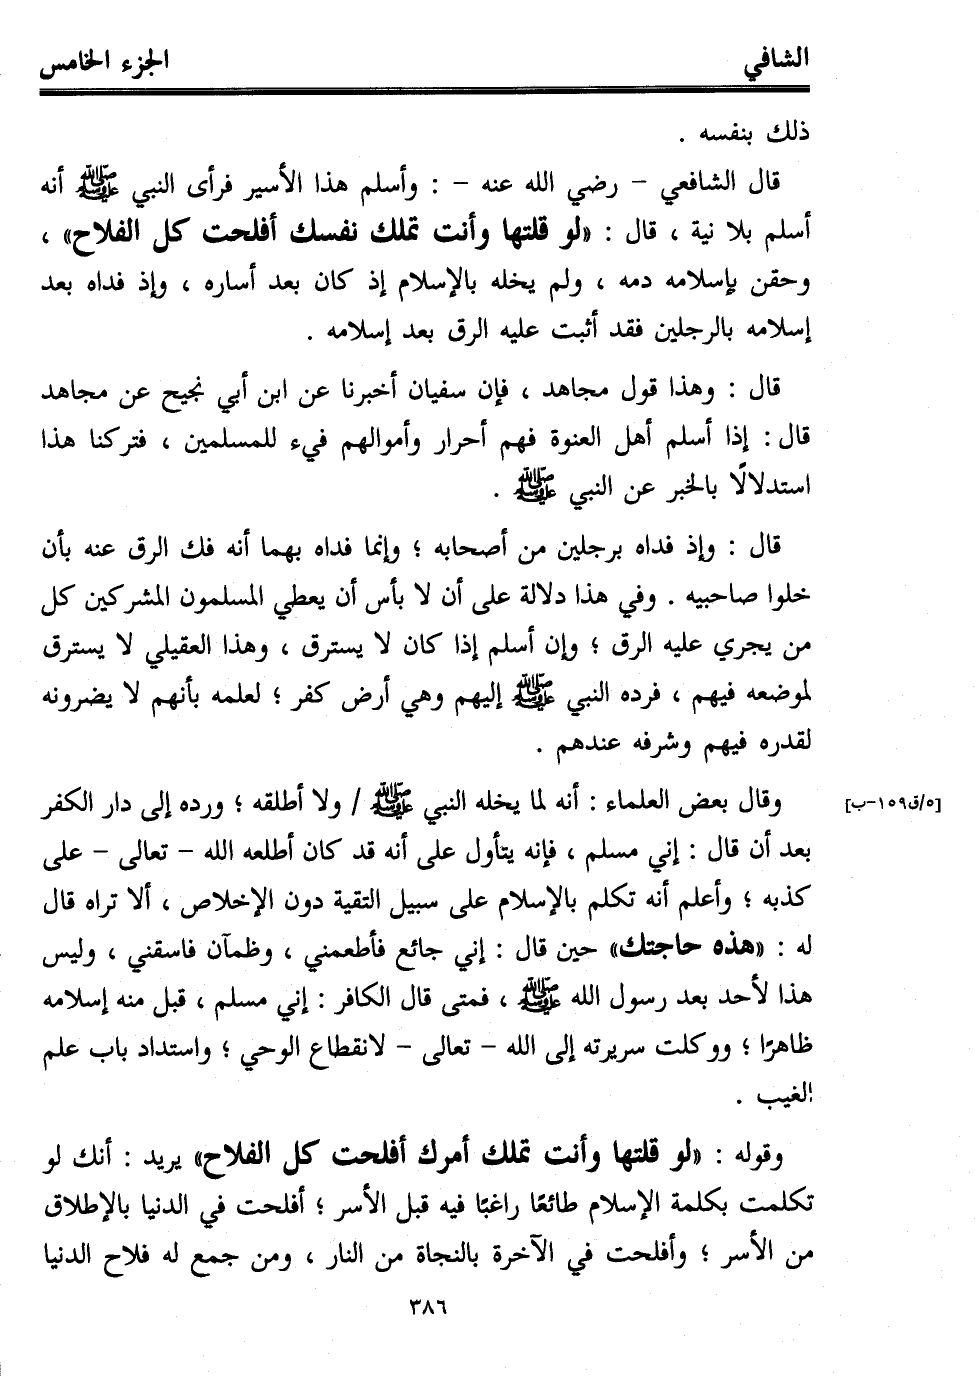 الشافي
الجزء الخامس
ذلك بنفسه .
قال الشافعي - رضي الله عنه - : وأسلم هذا الأسير فرأى النبي ﷺ أنه
أسلم بلا نية ، قال : «لو قلتها وأنت تملك نفسك أفلحت كل الفلاح» ،
وحقن بإسلامه دمه ، ولم يخله بالإسلام إذ كان بعد أساره ، وإذ فداه بعد
إسلامه بالرجلين فقد أثبت عليه الرق بعد إسلامه .
قال : وهذا قول مجاهد ، فإن سفيان أخبرنا عن ابن أبي نجيح عن مجاهد
قال : إذا أسلم أهل العنوة فهم أحرار وأموالهم فيء للمسلمين ، فتركنا هذا
استدلالًا بالخبر عن النبي ﷺ .
قال : وإذ فداه برجلين من أصحابه ؛ وإنما فداه بهما أنه فك الرق عنه بأن
خلوا صاحبيه . وفي هذا دلالة على أن لا بأس أن يعطي المسلمون المشركين كل
من يجري عليه الرق ؛ وإن أسلم إذا كان لا يسترق ، وهذا العقيلي لا يسترق
لموضعه فيهم ، فرده النبي ﷺ إليهم وهي أرض كفر ؛ لعلمه بأنهم لا يضرونه
لقدره فيهم وشرفه عندهم .
وقال بعض العلماء : أنه لما يخله النبي ﷺ / ولا أطلقه ؛ ورده إلى دار الكفر [٥/ق١٥٩-ب]
بعد أن قال : إني مسلم ، فإنه يتأول على أنه قد كان أطلعه الله - تعالى - على
كذبه ؛ وأعلم أنه تكلم بالإسلام على سبيل التقية دون الإخلاص ، ألا تراه قال
له : «هذه حاجتك» حين قال : إني جائع فأطعمني ، وظمآن فاسقني ، وليس
هذا لأحد بعد رسول الله ﷺ ، فمتى قال الكافر : إني مسلم ، قبل منه إسلامه
ظاهرًا ؛ ووكلت سريرته إلى الله - تعالى - لانقطاع الوحي ؛ واستداد باب علم
الغيب .
وقوله : «لو قلتها وأنت تملك أمرك أفلحت كل الفلاح» يريد : أنك لو
تكلمت بكلمة الإسلام طائعًا راغبًا فيه قبل الأسر ؛ أفلحت في الدنيا بالإطلاق
من الأسر ؛ وأفلحت في الآخرة بالنجاة من النار ، ومن جمع له فلاح الدنيا
٣٨٦